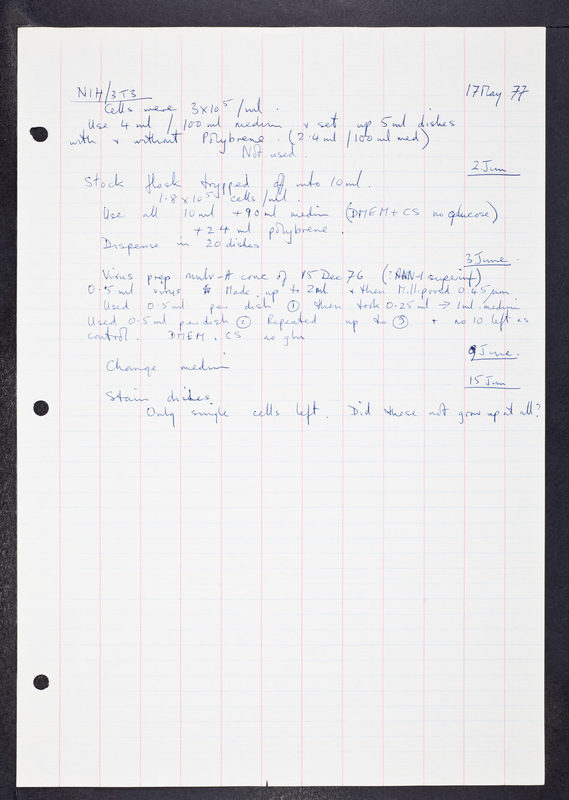 17 May 77
NIH/3T3
Cells were 3x10⁵/ml.
Use 4 ml / 100 ml medium & set up 5 ml dishes
with & without Polybrene. (2.4 ml / 100 ml med)
Not used.
2 Jun
Stock flask trypped off into 10 ml.
1.8 x 10⁵ cells/ml.
Use all 10 ml + 90 ml medium (DMEM + CS no glucose)
+ 2.4 ml polybrene.
Dispense in 20 dishes
3 June.
Virus prep mulv-A conc of 15 Dec 76
0.5 ml virus Made up to 2ml & then Millipored 0.45 µm
Used 0.5 ml per dish ① then took 0.25 ml → 1 ml medium
Used 0.5 ml per dish ② Repeated up to + no 10 left as
control. DMEM. CS no glu
9 June.
Change medium
15 Jun
Stain dishes
Only single cells left. Did these not grow up at all?